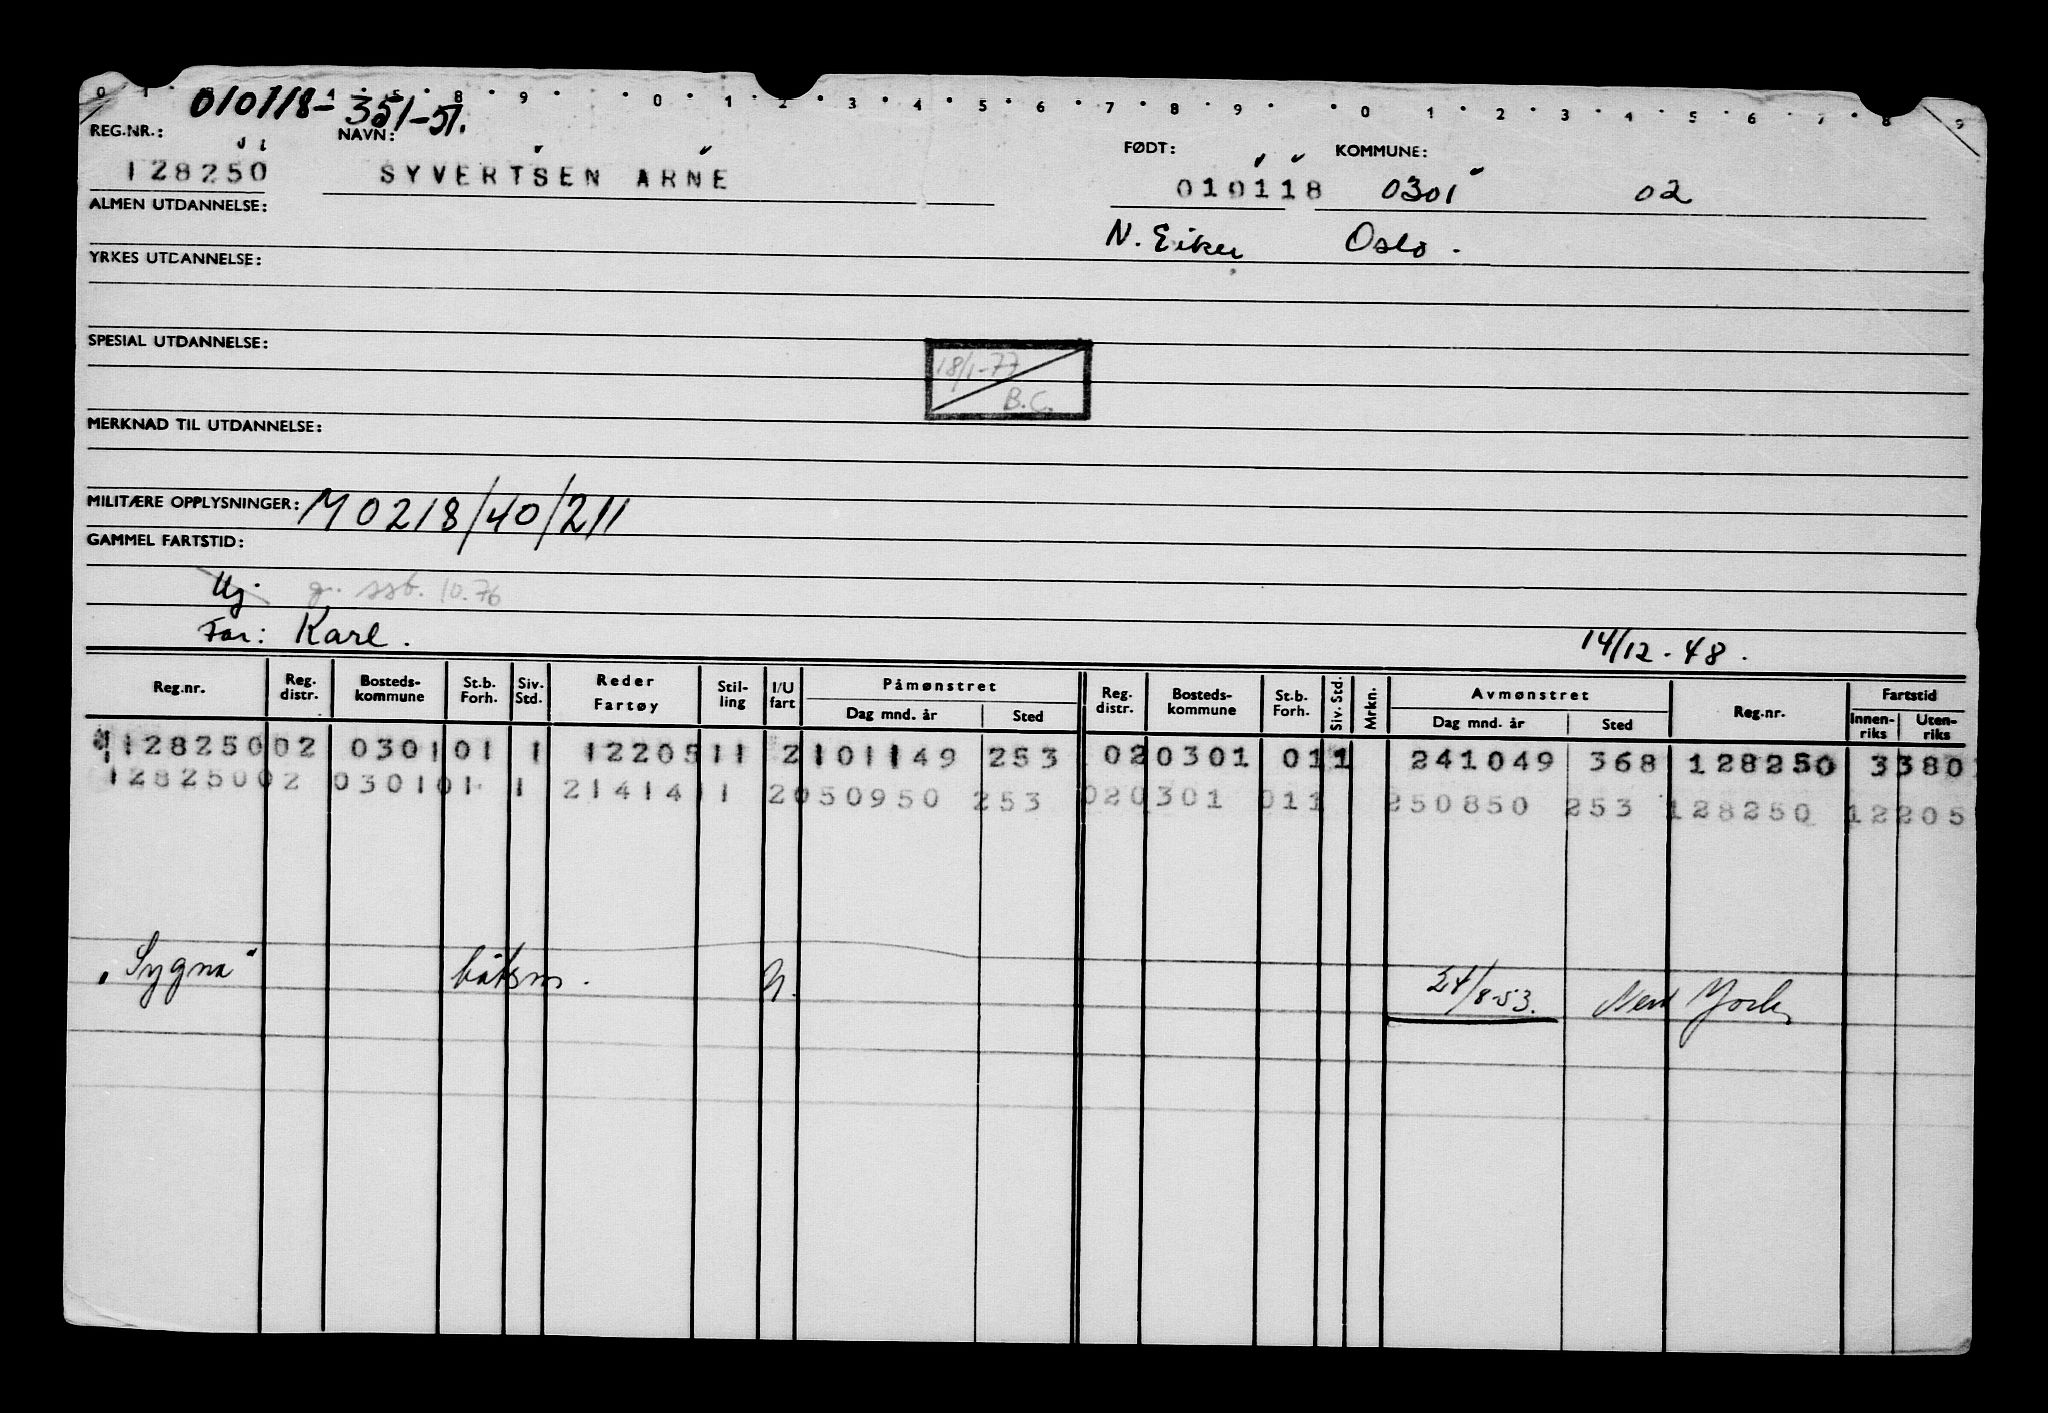 0 1 4 5 8 9 0 1 2 3 4 5 6 7 8 9 0 1 2 3 4 5 6 7 8 9
010118-351-51.
REG.NR.: NAVN: FØDT: KOMMUNE:
128250 SYVERTSEN ARNE 010118 0301 02
ALMEN UTDANNELSE:
N. Eiker Oslo.
YRKES UTDANNELSE:
SPESIAL UTDANNELSE:
18/1-77
B.C.
MERKNAD TIL UTDANNELSE:
MILITÆRE OPPLYSNINGER: M0218/40/211
GAMMEL FARTSTID:
Uj g. sst. 10.76
Far: Karl.
14/12-48.
Reg.nr. Reg. distr. Bosteds-kommune St.b. Forh. Siv. Std. Reder Fartøy Stil-ling I/U fart Påmønstret Dag mnd. år Sted Reg. distr. Bosteds-kommune St.b. Forh. Siv. Std. Mrkn. Avmønstret Dag mnd. år Sted Reg.nr. Fartstid Innen-riks Uten-riks
128250 02 0301 01 1 12205 11 2 101149 253 02 0301 01 1 241049 368 128250 3380
128250 02 0301 01 1 21414 11 2 050950 253 02 0301 01 1 250850 253 128250 12205
"Sygna" båtsm. 24/8-53. New York